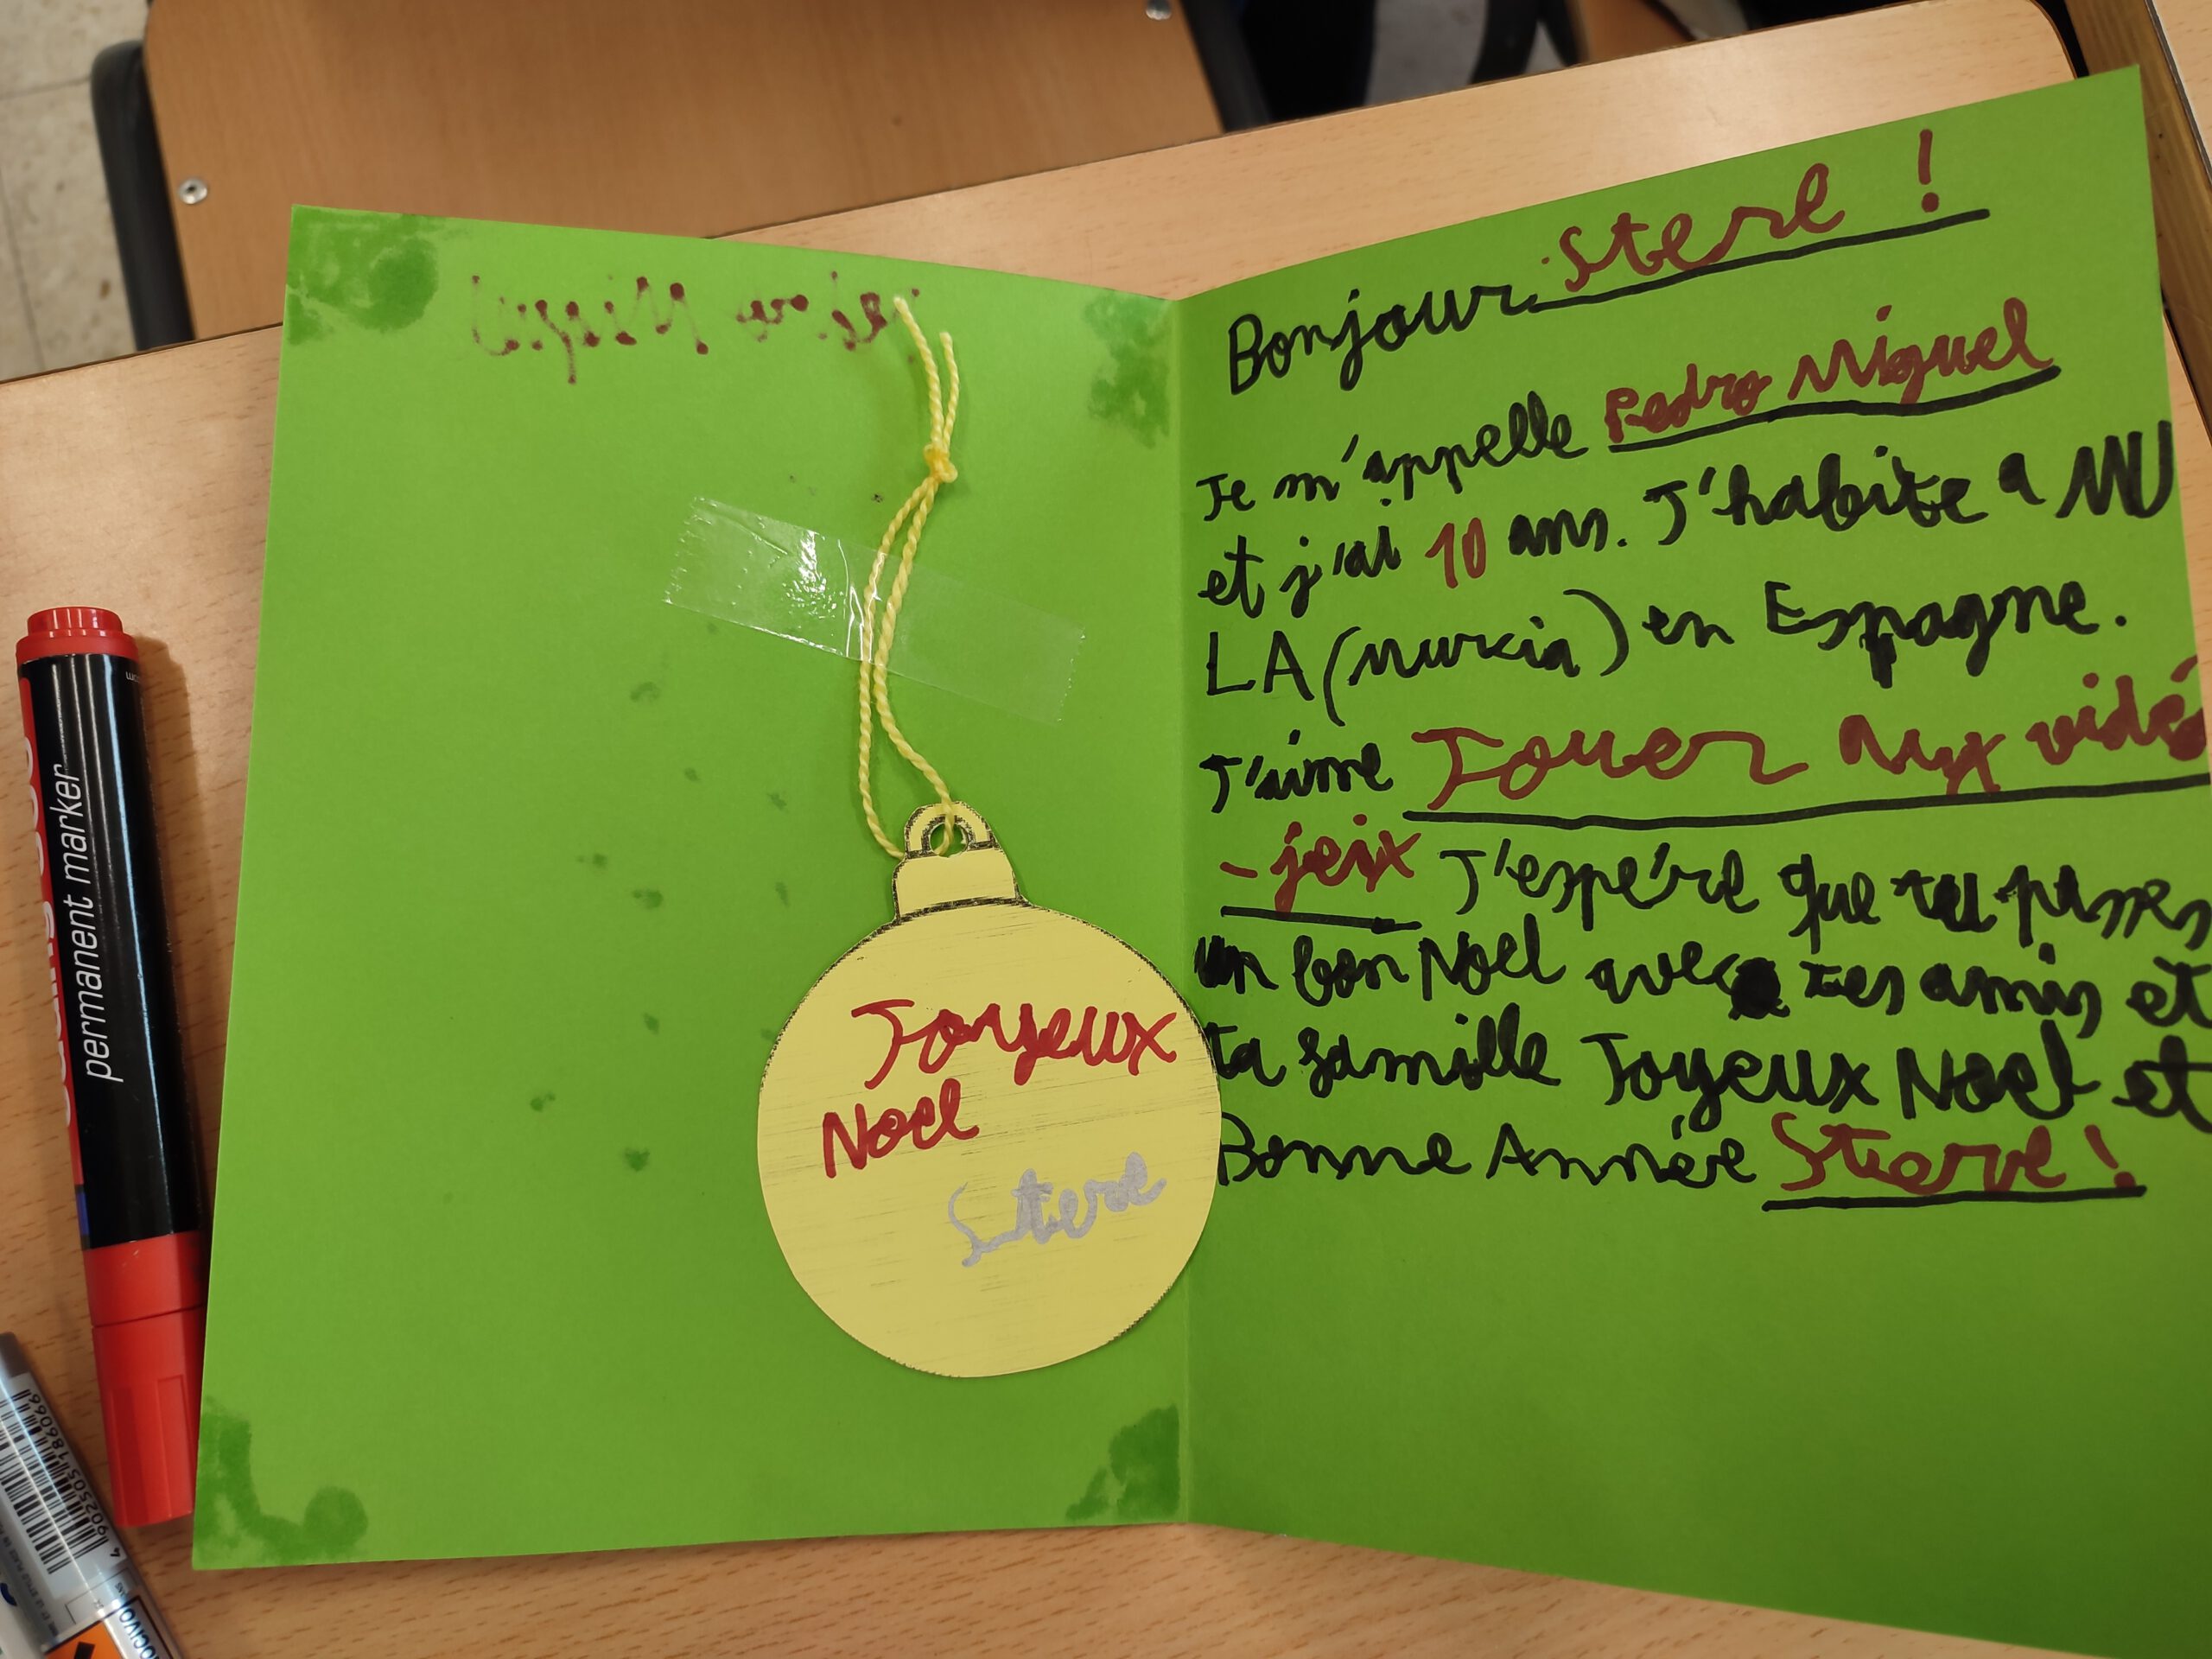 Bonjour Stere !
Je m'appelle Pedro Miguel
et j'ai 10 ans. J'habite a MU
LA (Murcia) en Espagne.
J'aime Jouer Aux vidé
- jeix J'espére que tu passes
un bon Noel avec tes amis et
ta famille Joyeux Noel et
Bonne Année Sterve !
Joyeux
Noel
Stere
permanent marker
4 902505 186066